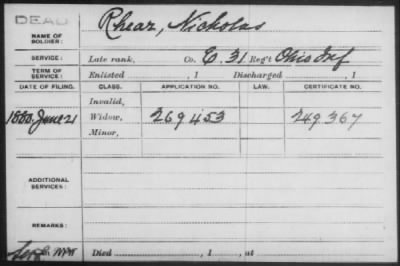 DEAD
Rhear, Nicholas
NAME OF SOLDIER:
SERVICE: Late rank, Co. C. 31 Reg't Ohio Inf
TERM OF SERVICE: Enlisted , 1 Discharged , 1
DATE OF FILING. CLASS. APPLICATION NO. LAW. CERTIFICATE NO.
Invalid,
1880. June 21 Widow, 269453 249367
Minor,
ADDITIONAL SERVICES:
REMARKS:
Died , 1 , at